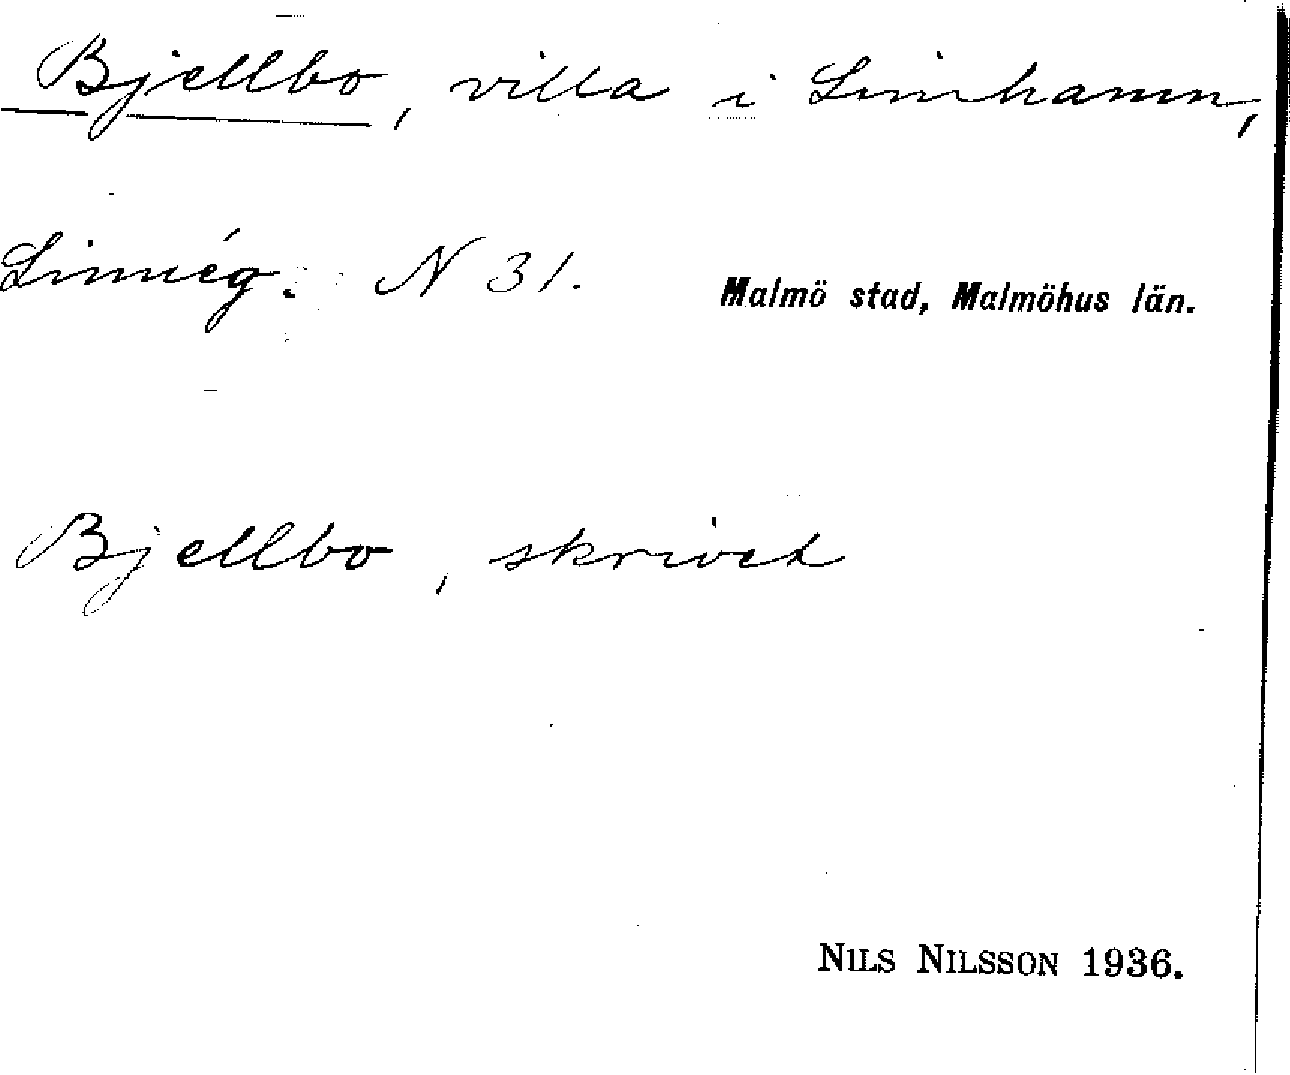 Bjellbo, villa i Limhamn,
Linnég. N 31. Malmö stad, Malmöhus län.
Bjellbo, skrivet
NILS NILSSON 1936.